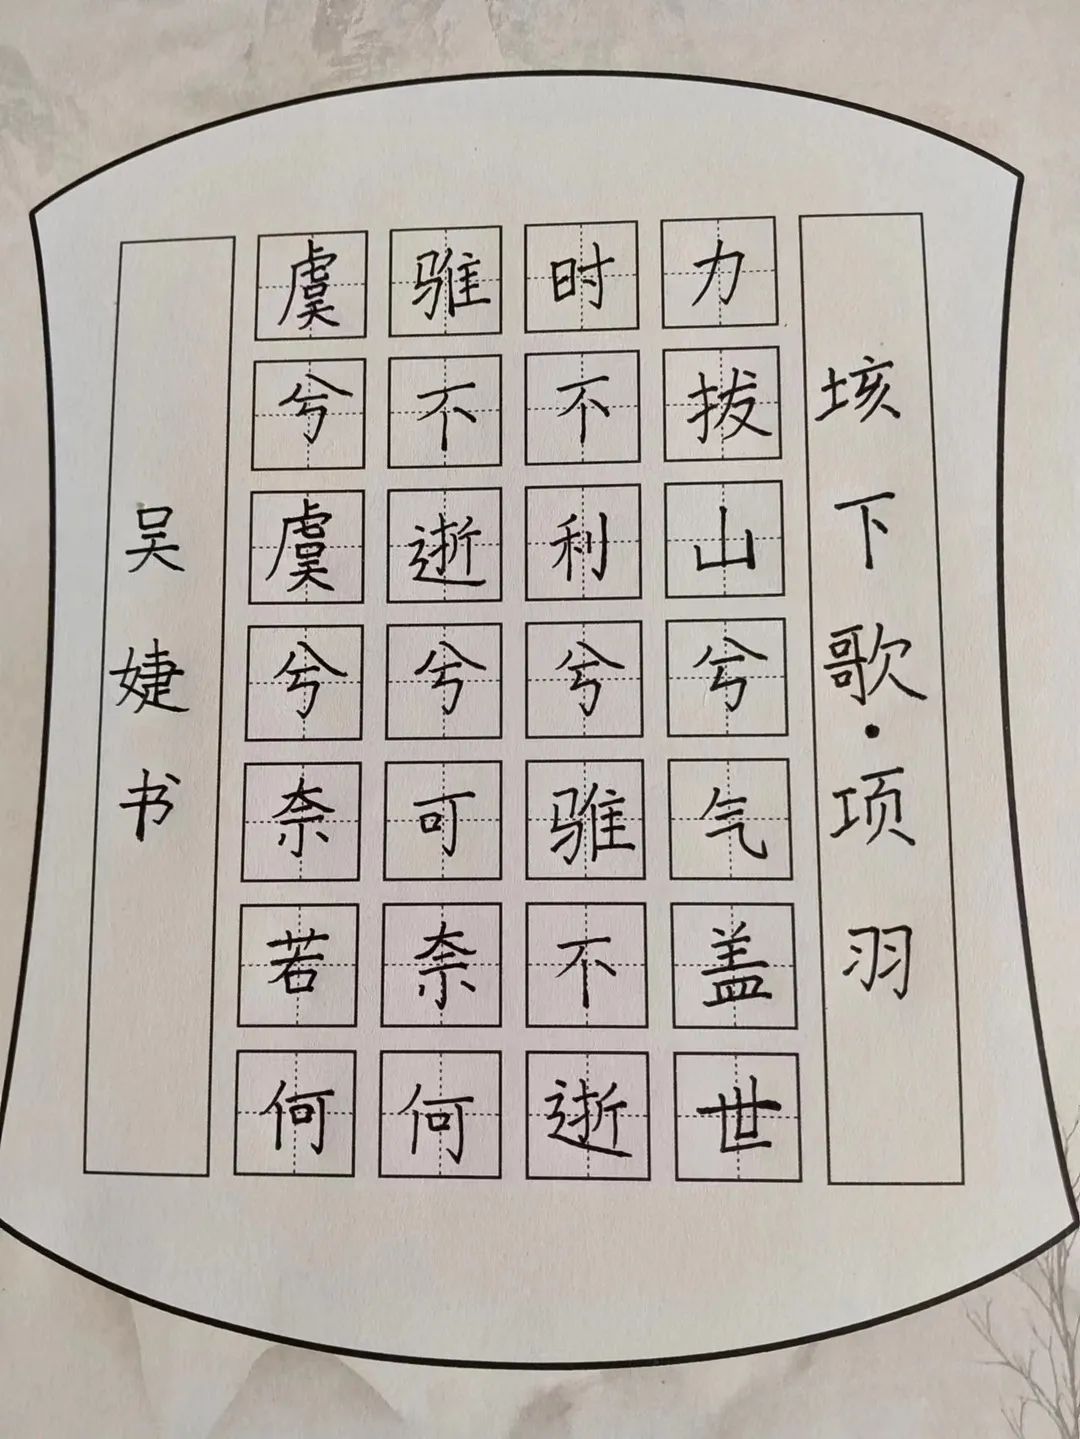 垓下歌·项羽
力拔山兮气盖世
时不利兮骓不逝
骓不逝兮可奈何
虞兮虞兮奈若何
吴婕书